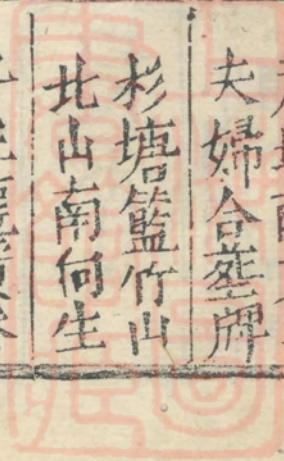 夫婦合塟牌
杉塘籃竹山
北山南向生